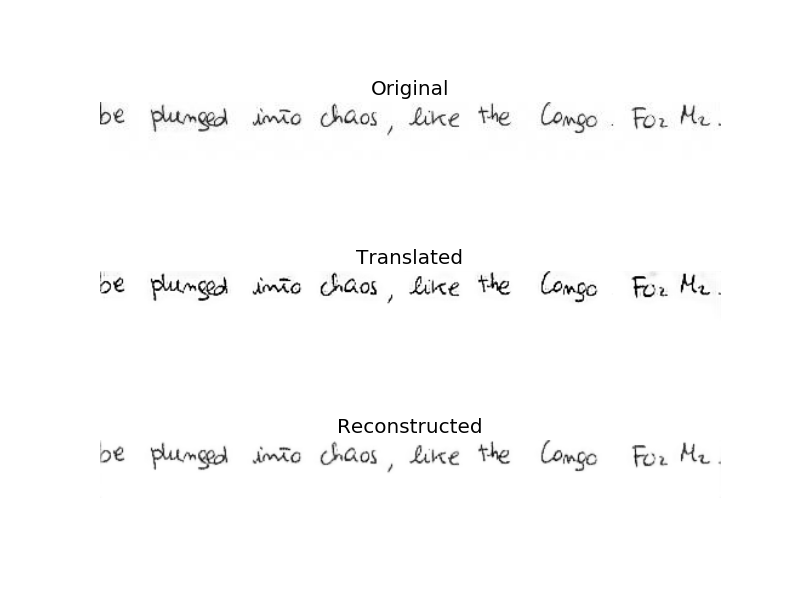 Original
be plunged into chaos, like the Congo. For Mr.
Translated
be plunged into chaos, like the Congo For Mr.
Reconstructed
be plunged into chaos, like the Congo For Mr.